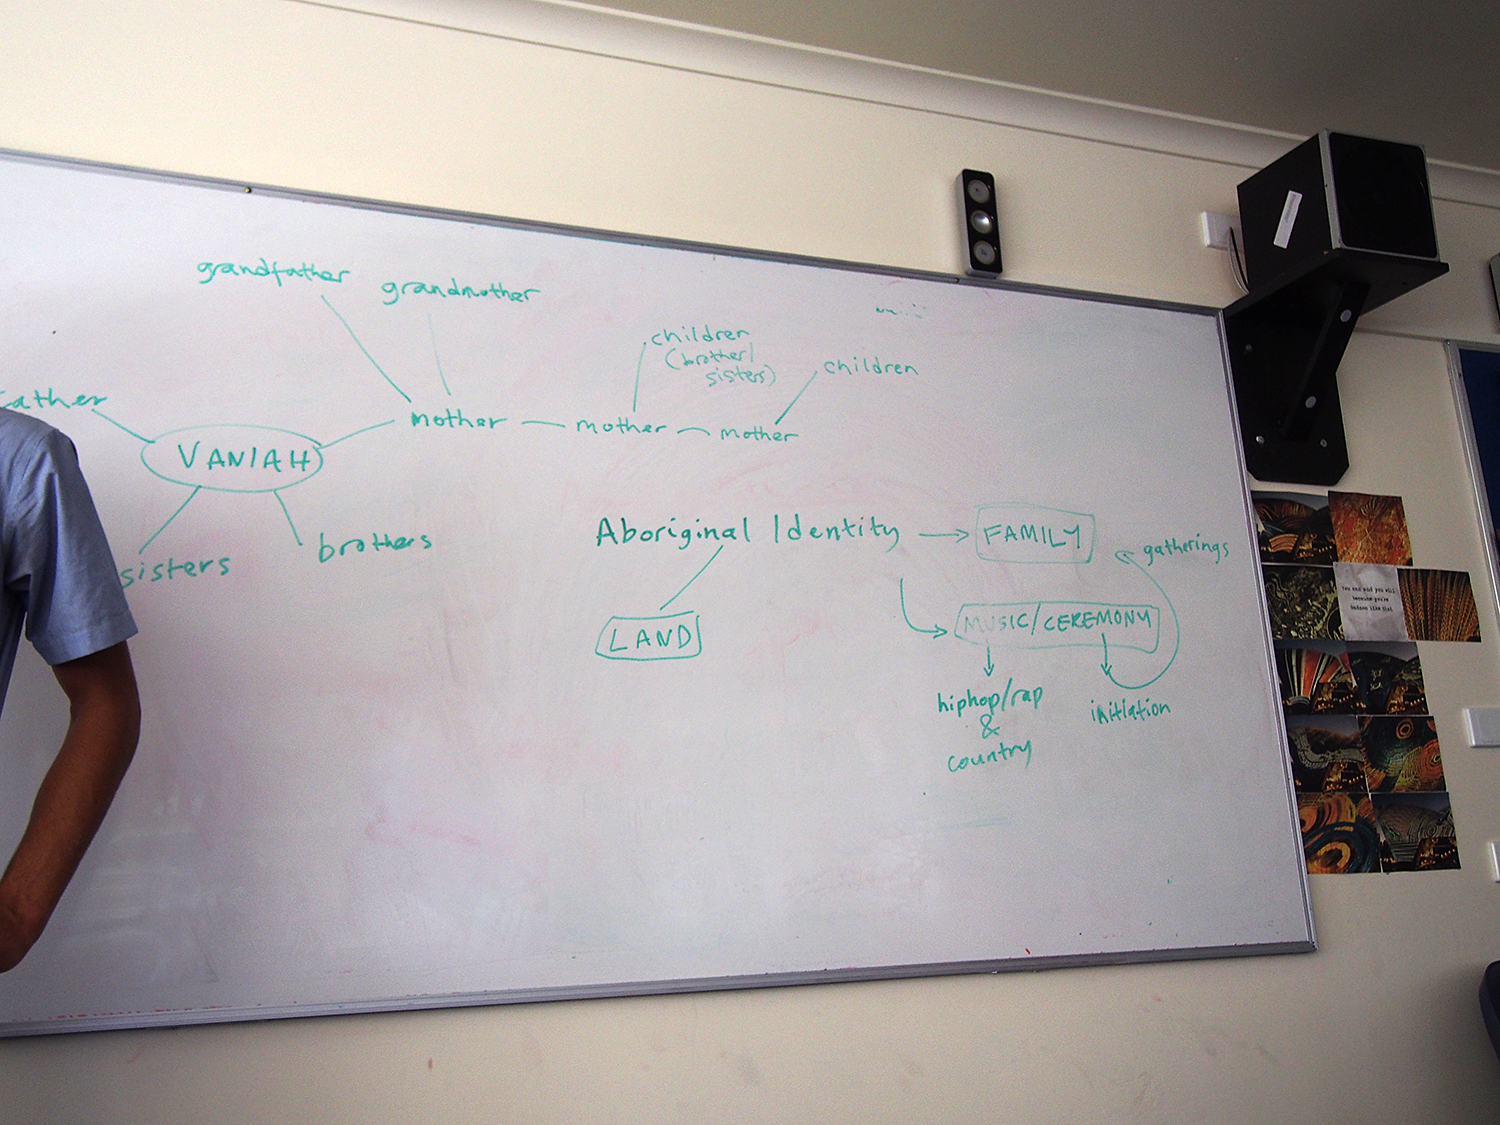 grandfather
grandmother
children
(brother/
sisters)
children
father
mother
mother
mother
VANIAH
sisters
brothers
Aboriginal Identity
FAMILY
gatherings
LAND
MUSIC/CEREMONY
hiphop/rap
&
country
initiation